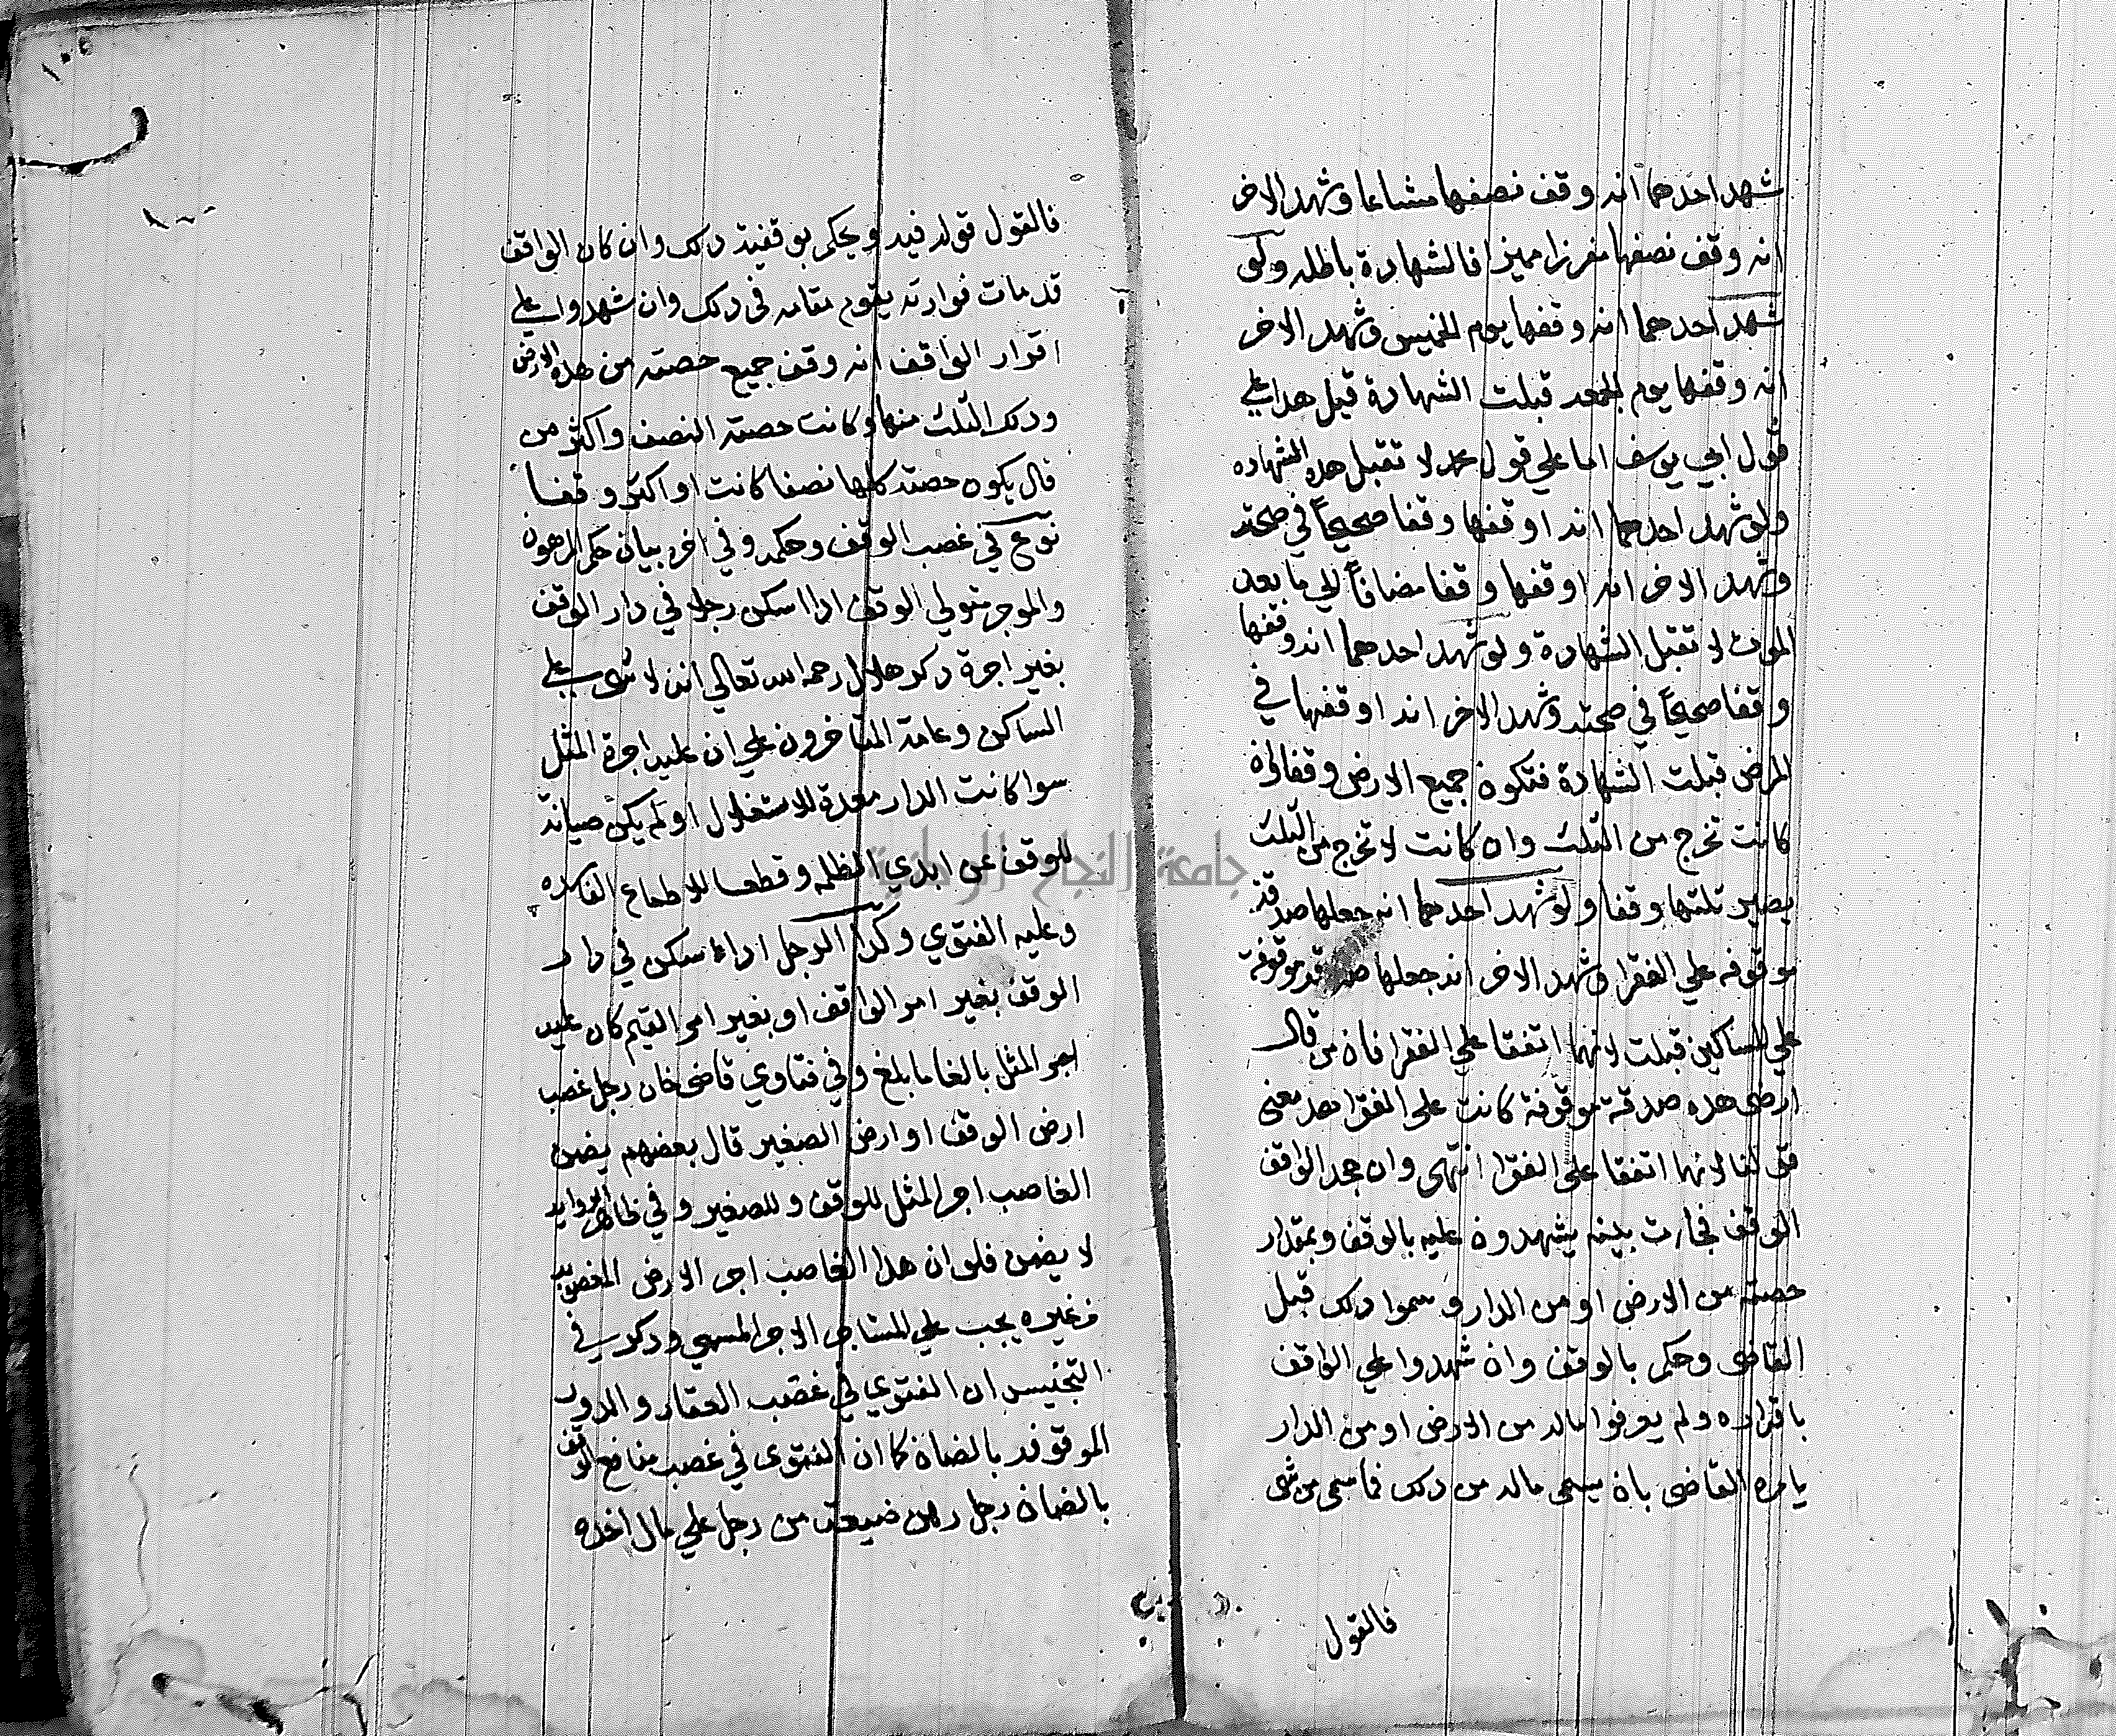 شهد احدهما انه وقف نصفها مشاعا وشهد الاخر
انه وقف نصفها مفرزا مميزا فالشهادة باطله ولو
شهد احدهما انه وقفها يوم الخميس وشهد الاخر
انه وقفها يوم الجمعه قبلت الشهادة قيل هدا علي
قول ابي يوسف اما علي قول محمد لا تقبل هده الشهاده
ولو شهد احدهما انه اوقفها وقفا صحيحاً في صحته
وشهد الاخر انه اوقفها وقفا مضافاً الي ما بعد
الموت لا تقبل الشهادة ولو شهد احدهما انه وقفها
وقفا صحيحاً في صحته وشهد الاخر انه اوقفها في
المرض قبلت الشهادة فتكون جميع الارض وقفا ان
كانت تخرج من الثلث وان كانت لا تخرج من الثلث
يصير ثلثها وقفا ولو شهد احدهما انه جعلها صدقة
موقوفه علي الفقرا وشهد الاخر انه جعلها صدقه موقوفة
علي المساكين قبلت لانهما اتفقا علي الفقرا فان من قال
ارضى هده صدقة موقوفة كانت على الفقرا هد معنى
قولنا لانهما اتفقا على الفقرا انتهى وان جحد الواقف
الوقف فجارت بينه يشهدون عليه بالوقف وبمقدار
حصته من الارض او من الدار وسموا دلك قبل
القاضى وحكم بالوقف وان شهدوا علي الواقف
باقراره ولم يعرفوا ماله من الارض او من الدار
يامره القاضى بان يسمى ماله من دلك فما سمى من شى
فالقول
١٠٥
١٠٠
فالقول قوله فيه ويحكم بوقفية دلك وان كان الواقف
قد مات فوارثه يقوم مقامه فى دلك وان شهدوا علي
اقرار الواقف انه وقف جميع حصته من هده الارض
ودلك الثلث منها وكانت حصته النصف واكثر من
قال يكون حصته كلها نصفا كانت او اكثر وقفا
نوع في غصب الوقف وحكمه وفي اخره بيان حكم المرهون
والموجر متولي الوقف ادا اسكن رجلا في دار الوقف
بغير اجرة دكر هلال رحمه الله تعالي انه لا شى علي
الساكن وعامة المتاخرون علي ان عليه اجرة المثل
سوا كانت الدار معدة للاستغلال او لم يكن صيانة
للوقف عن ايدي الظلمه وقطعا للاطماع الفاسده
وعليه الفتوي وكدا الرجل ادا اسكن في دار
الوقف بغير امر الواقف او بغير امر القيم كان عليه
اجر المثل بالغا ما بلغ وفي فتاوي قاضى خان رجل غصب
ارض الوقف او ارض الصغير قال بعضهم يضمن
الغاصب اجر المثل للوقف وللصغير وفي ظاهر الروايه
لا يضمن فلو ان هدا الغاصب اجر الارض المغصوبه
من غيره يجب علي المستاجر الاجر المسمي ودكر في
التجنيس ان الفتوي في غصب العقار والدور
الموقوفه بالضمان كما ان الفتوى في غصب منافع الوقف
بالضمان رجل رهن ضيعة من رجل علي مال اخده
جامعة النجاح الوطنية